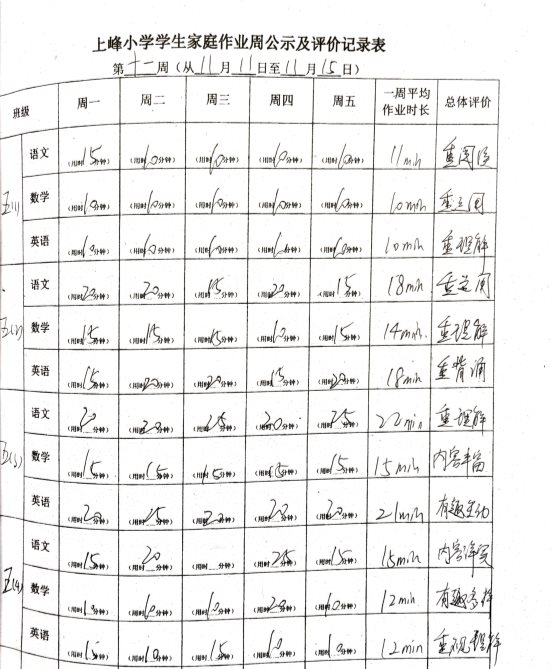 上峰小学学生家庭作业周公示及评价记录表
第十一周（从11月11日至11月15日）
班级 周一 周二 周三 周四 周五 一周平均作业时长 总体评价
五(1) 语文 （用时15分钟） （用时10分钟） （用时10分钟） （用时10分钟） （用时10分钟） 11min
数学 （用时10分钟） （用时10分钟） （用时10分钟） （用时10分钟） （用时10分钟） 10min
英语 （用时10分钟） （用时10分钟） （用时10分钟） （用时10分钟） （用时10分钟） 10min 重理解
五(2) 语文 （用时20分钟） （用时20分钟） （用时15分钟） （用时20分钟） （用时15分钟） 18min
数学 （用时15分钟） （用时15分钟） （用时15分钟） （用时10分钟） （用时15分钟） 14min. 重理解
英语 （用时15分钟） （用时20分钟） （用时20分钟） （用时15分钟） （用时20分钟） 18min 重背诵
五(3) 语文 （用时20分钟） （用时20分钟） （用时25分钟） （用时20分钟） （用时25分钟） 22min 重理解
数学 （用时15分钟） （用时15分钟） （用时15分钟） （用时15分钟） （用时15分钟） 15min 内容丰富
英语 （用时20分钟） （用时25分钟） （用时20分钟） （用时20分钟） （用时20分钟） 21min 有趣生动
五(4) 语文 （用时15分钟） （用时20分钟） （用时 分钟） （用时25分钟） （用时15分钟） 15min 内容详实
数学 （用时10分钟） （用时10分钟） （用时10分钟） （用时20分钟） （用时10分钟） 12min 有趣多样
英语 （用时15分钟） （用时10分钟） （用时15分钟） （用时10分钟） （用时10分钟） 12min 重视理解